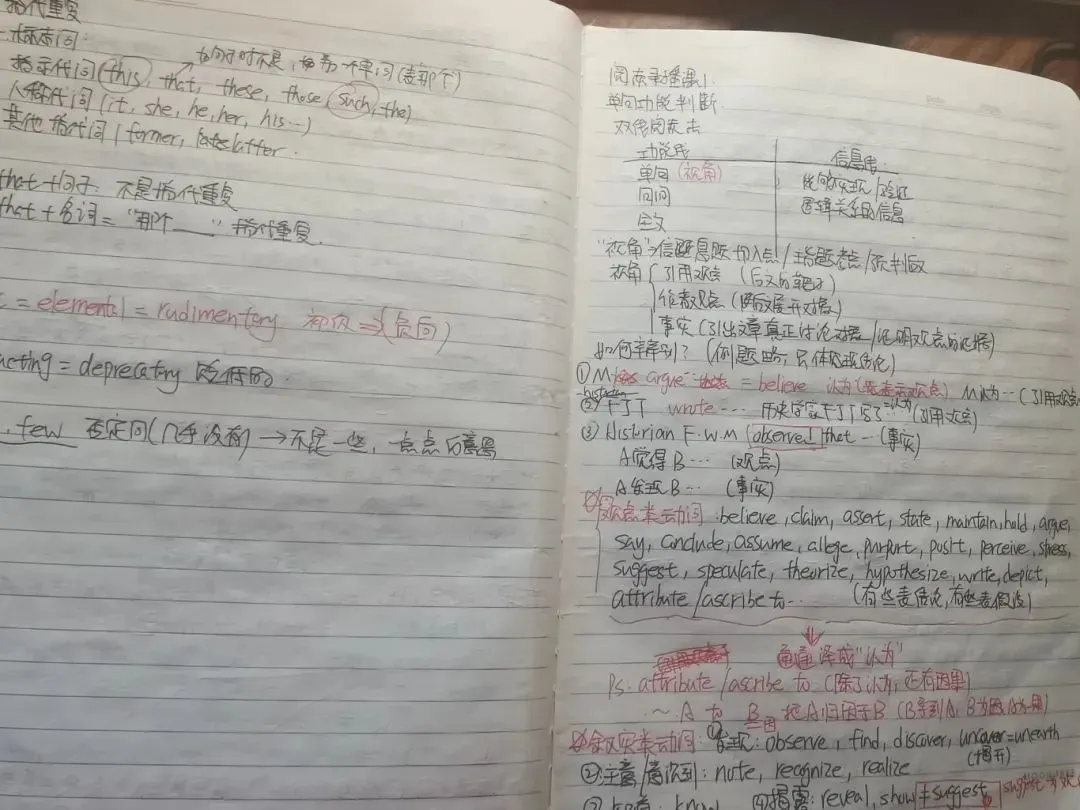 指代重复
标志词：
如句子时不是，如为一个单词(表那个)
指示代词(this, that, these, those, such, the)
人称代词(it, she, he, her, his…)
其他指代词 | former, latter.
that+句子：不是指代重复
that+名词="那个___"指代重复.
= elemental = rudimentary 初级 => (负向)
= deprecatory 贬低的.
few 否定词(几乎没有)→不是一些，一点点的意思
阅读录播课1
单句功能判断
双线阅读法
功能线 信息线
单句(视角)
句间 逻辑关系的信息
全文
"视角"→信息题切入点/主旨题考点/预判版
视角 引用观点
作者观点
事实(引出文章真正讨论对象/证明观点的证据)
如何辨别？
① M argue = believe 认为 M认为…(引用观点
② TJT wrote … 历史学家TJT写了 (引用观点)
③ Historian F.W.M observed that … (事实)
A觉得B… (观点)
A发现B… (事实)
观点类动词：believe, claim, assert, state, maintain, hold, argue,
say, conclude, assume, allege, purport, posit, perceive, stress,
suggest, speculate, theorize, hypothesize, write, depict,
attribute/ascribe to… (有些表结论,有些表假设)
通通译成"认为"
Ps. attribute/ascribe to (除了认为,还有因果)
~ A to B 把A归因于B (B导致A, B为因,A为果)
事实类动词：①发现：observe, find, discover, uncover=unearth
(揭开)
②注意/意识到：note, recognize, realize
③知道：know ④揭露：reveal, show ≠ suggest